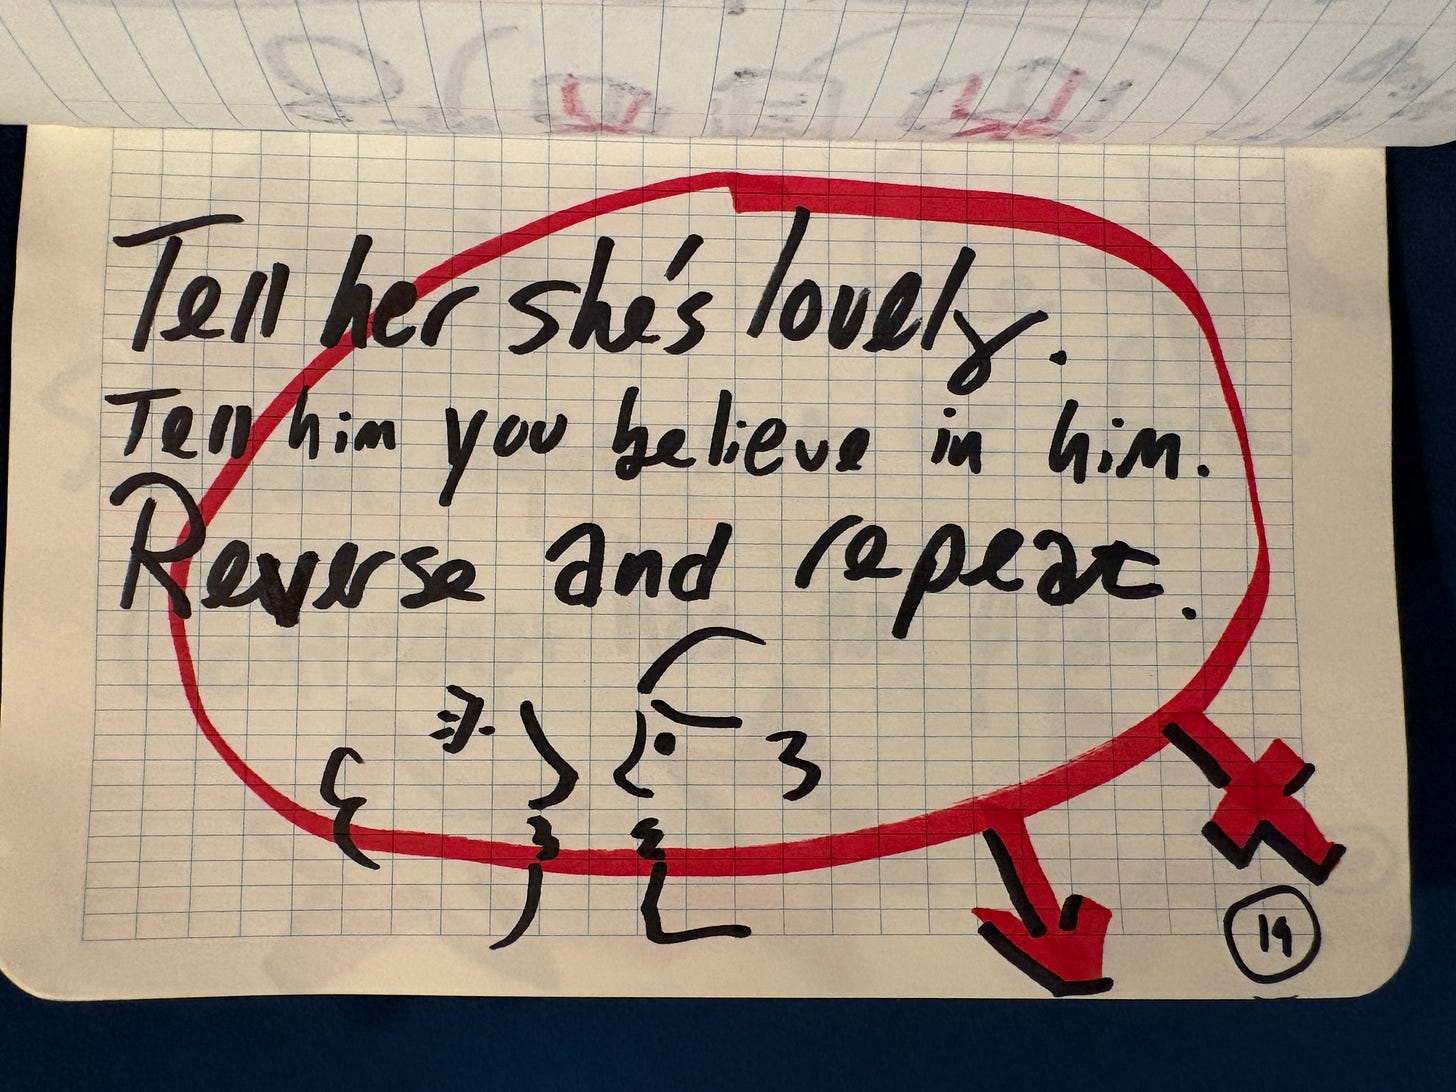 Tell her she's lovely.
Tell him you believe in him.
Reverse and repeat.
19